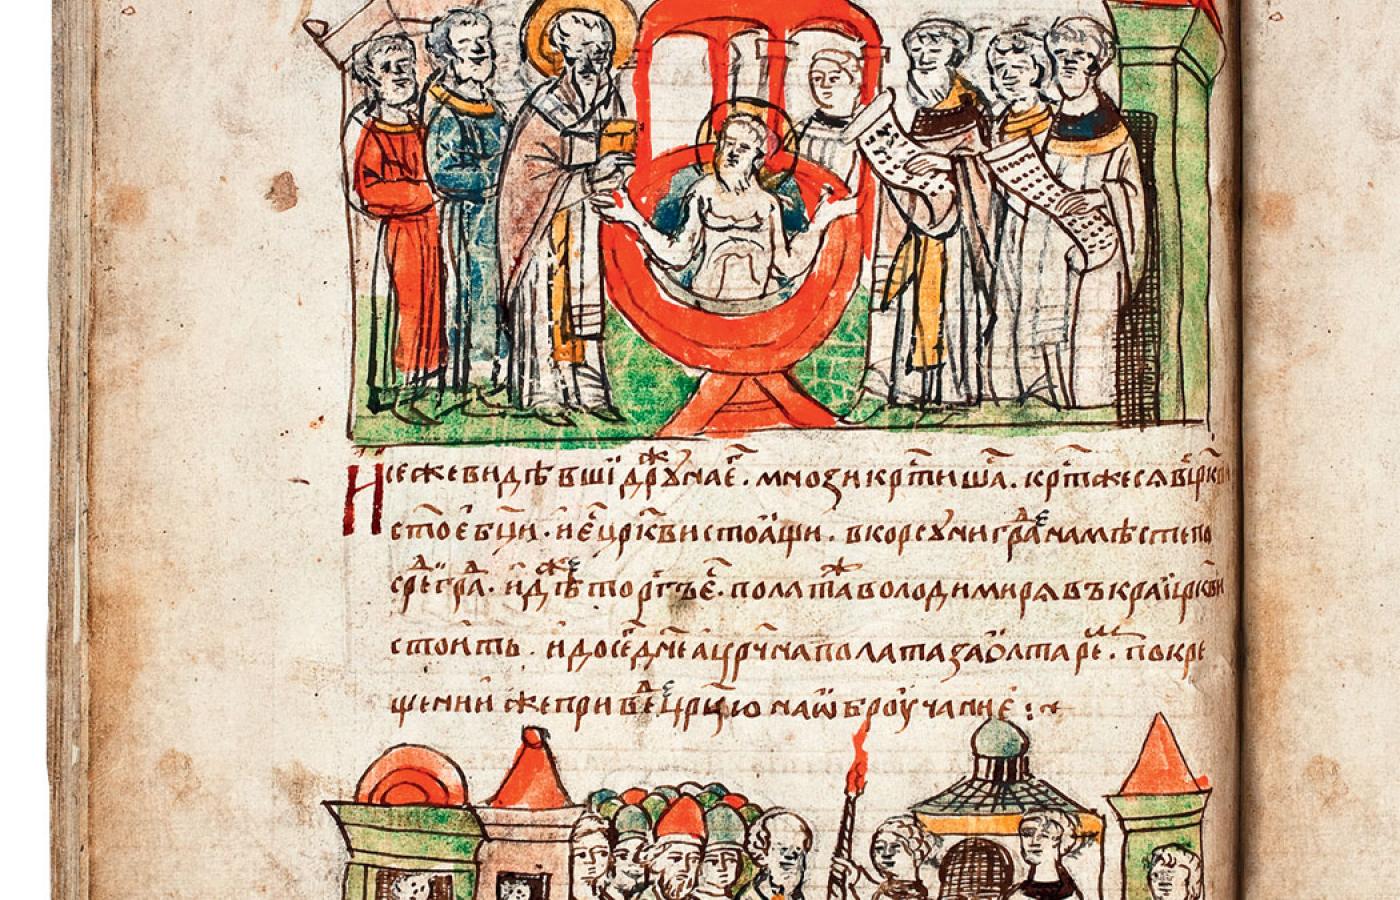 Сеже видѣвши дрꙋжинаеⷢ҇. мнози крⷭ҇тишаⷭ҇. крⷭ҇тжеся в цр҃кви
ст҃ое бц҃и. и еⷭ҇ цр҃кви стоѧщи. в корсꙋни граⷣе на мѣсте по
среⷣ граⷣ. идѣже торгъ деюⷮ. полатаж володимиря въ краи цр҃кви
стоить. и до сего дн҃е а цр҃цина полата за ѡлтареⷨ. по кре
щении же привеⷣ цр҃цю на ѡброучание